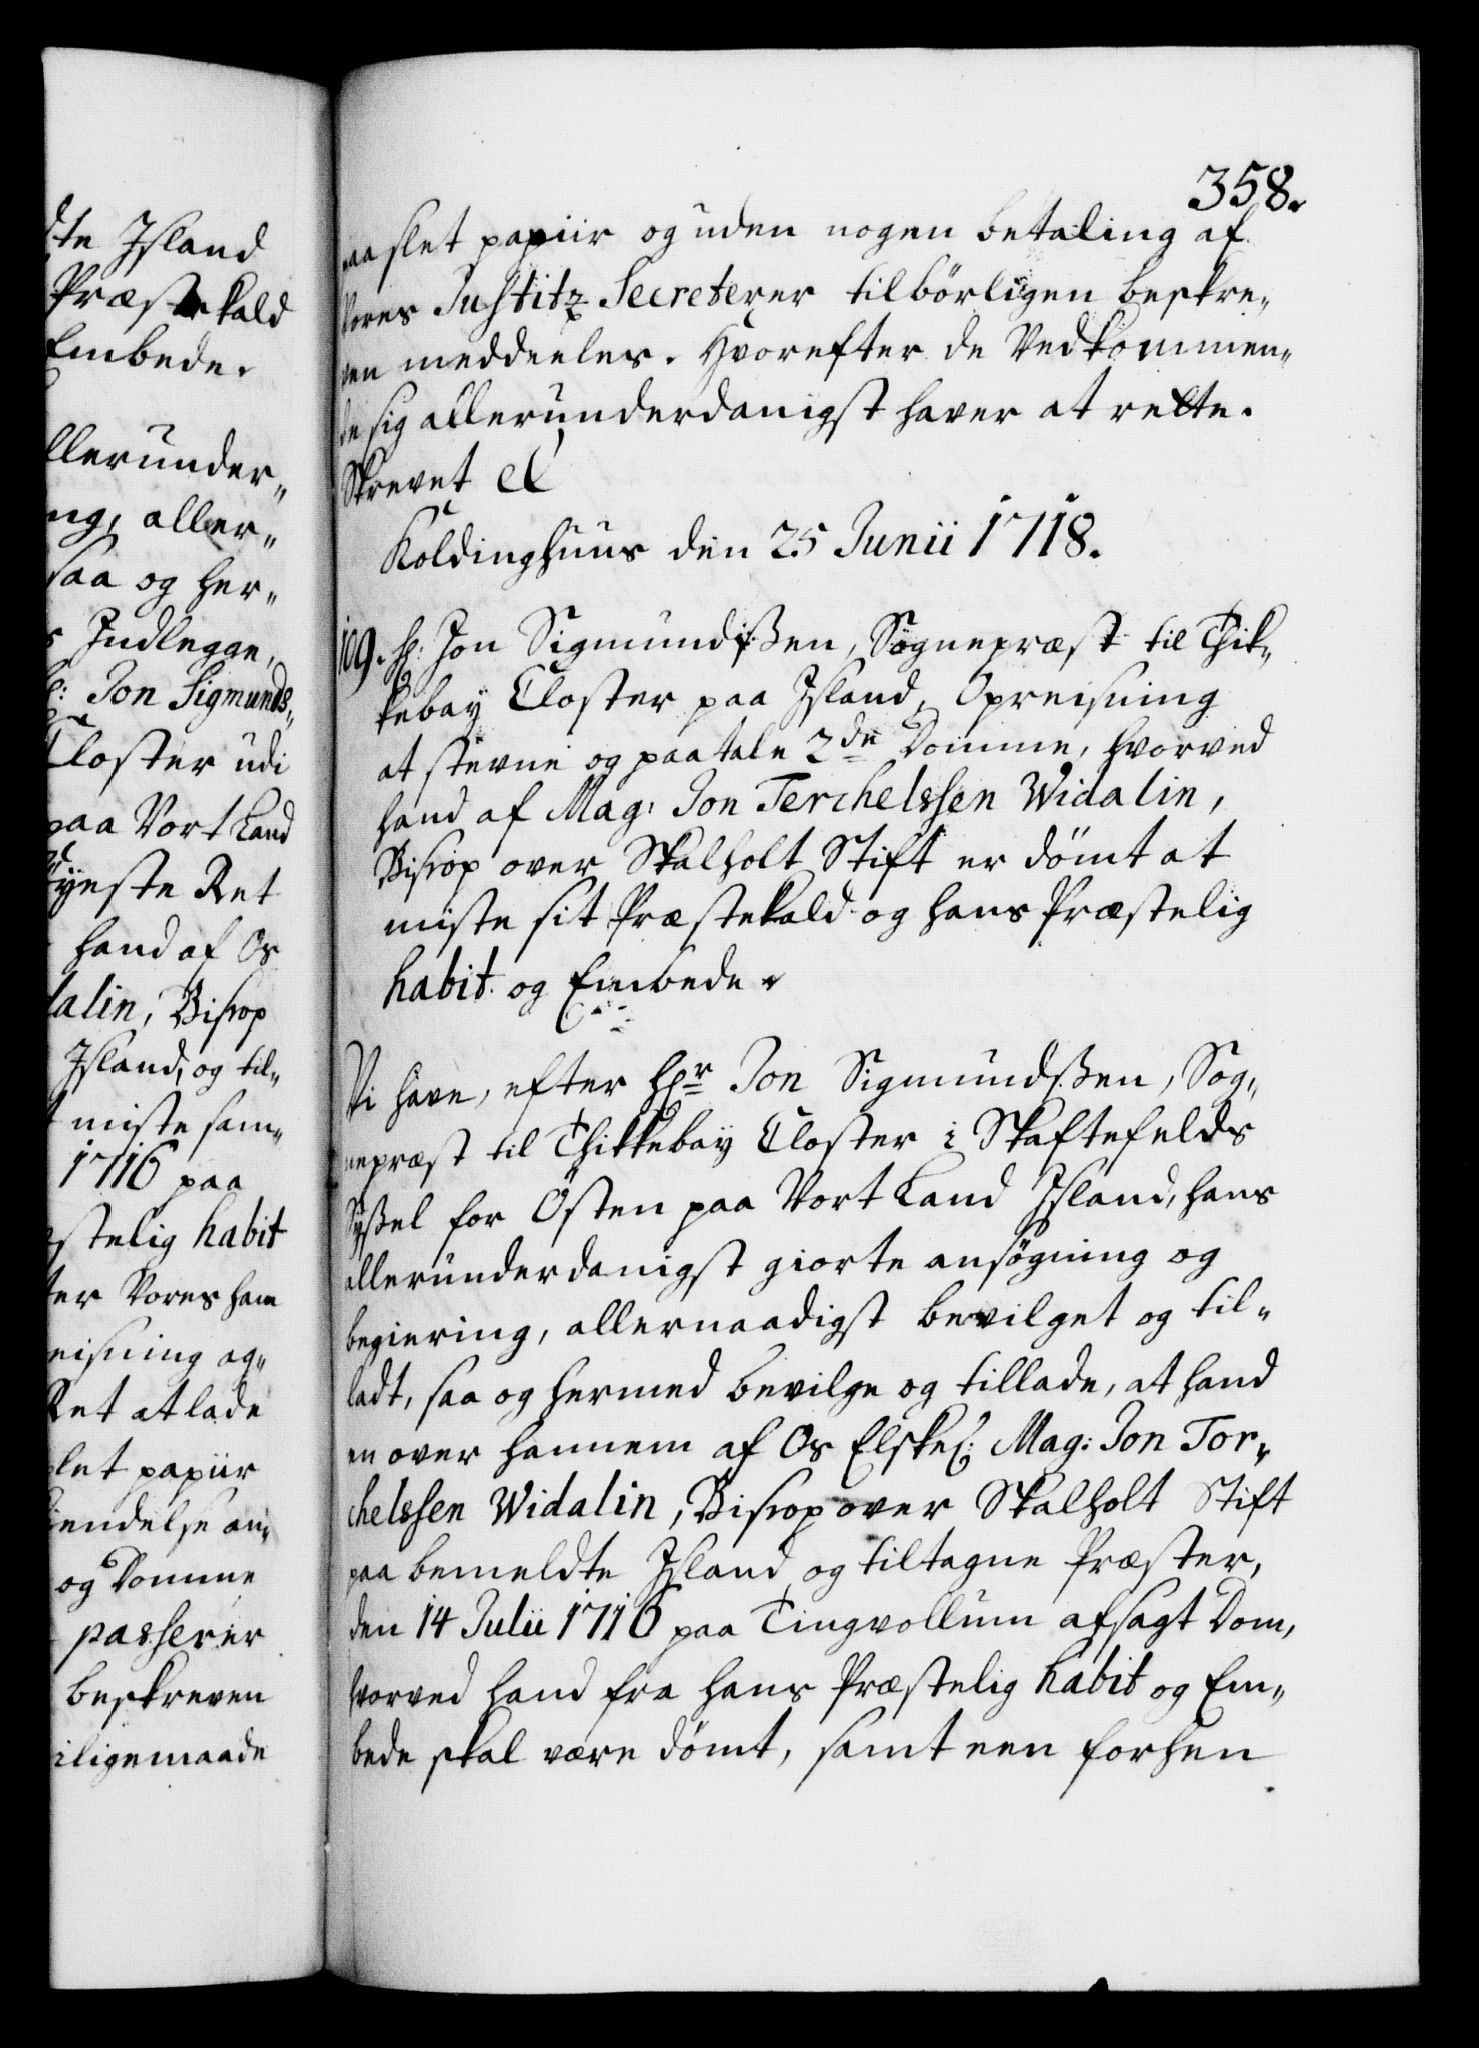 dte Island
Præstekald
Embede.
llerunder„
ng, aller„
saa og her„
s Indlegge,
hr: Jon Sigmunds„
Closter udi
paa Vort Land
øyeste Ret
hand af Os
dalin, Biscop
Island, og til„
t miste sam„
1716 paa
æstelig habit
ter Vores ham
eisning og„
Ret at lade
slet papiir
kiendelse an„
og Domme
passerer
beskreven
iligemaade
358.
paa slet papiir og uden nogen betaling af
Vores Justitz Secreterer tilbörligen beskre„
ven meddeeles. Hvorefter de Vedkommen„
de sig allerunderdanigst haver at rette.
Skrevet etc
Koldinghuus den 25 Junii 1718.
109. Hr: Jon Sigmundissen, Sognepræst til Thik„
kebay Closter paa Island, Opreisning
at stevne og paatale 2de Domme, hvorved
hand af Mag: Jon Terchelssen Widalin,
Biscop over Skalholt Stift er dömt at
miste sit Præstekald og hans Præstelig
habit og Embede.
Vi have, efter Hr Jon Sigmundssen, Sog„
nepræst til Thikkebay Closter i Skaftefelds
Syssel for Östen paa Vort Land Island, hans
allerunderdanigst giorte ansögning og
begiering, allernaadigst bevilget og til„
ladt, saa og hermed bevilge og tillade, at hand
en over hannem af Os Elskel: Mag: Jon Tor„
chelssen Widalin, Biscop over Skalholt Stift
paa bemeldte Island, og tiltagne Præster,
den 14 Julii 1716 paa Tingvollum afsagt Dom,
hvorved hand fra hans Præstelig habit og Em„
bede skal være dömt, samt een forhen